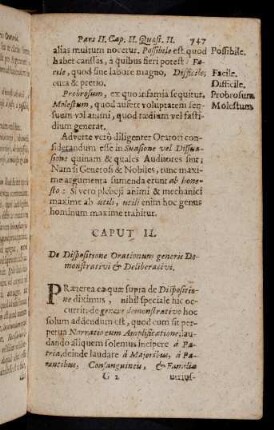 Pars II. Cap. II. Quæst. II. 747
alias multum nocetur. Possibile est quod
habet caussas, à quibus fieri potest: Fa-
cile, quod sine labore magno, Difficile,
cura & pretio.
Probrosum, ex quo infamia sequitur.
Molestum, quod aufert voluptatem sen-
suum vel animi, quod tædium vel fasti-
dium generat.
Adverte verò diligenter Oratori con-
siderandum esse in Suasione vel Dissua-
sione quinam & quales Auditores sint;
Nam si Generosi & Nobiles, tunc maxi-
me argumenta sumenda erunt ab hone-
sto: Si verò plebeji animi & mechanici
maxime ab utili, utili enim hoc genus
hominum maxime trahitur.
CAPUT II.
De Dispositione Orationum generis De-
monstrativi & Deliberativi.
PRæterea ea quæ supra de Dispositio-
ne diximus, nihil speciale hic oc-
currit: de genere demonstrativo hoc
solum addendum est, quod cum sit per-
petua Narratio cum Amplificatione, lau-
dando aliquem solemus incipere à Pa-
tria, deinde laudare à Majoribus, à Pa-
rentibus, Consanguineis, & Familia
G 2
Possibile.
Facile.
Difficile.
Probrosum.
Molestum.